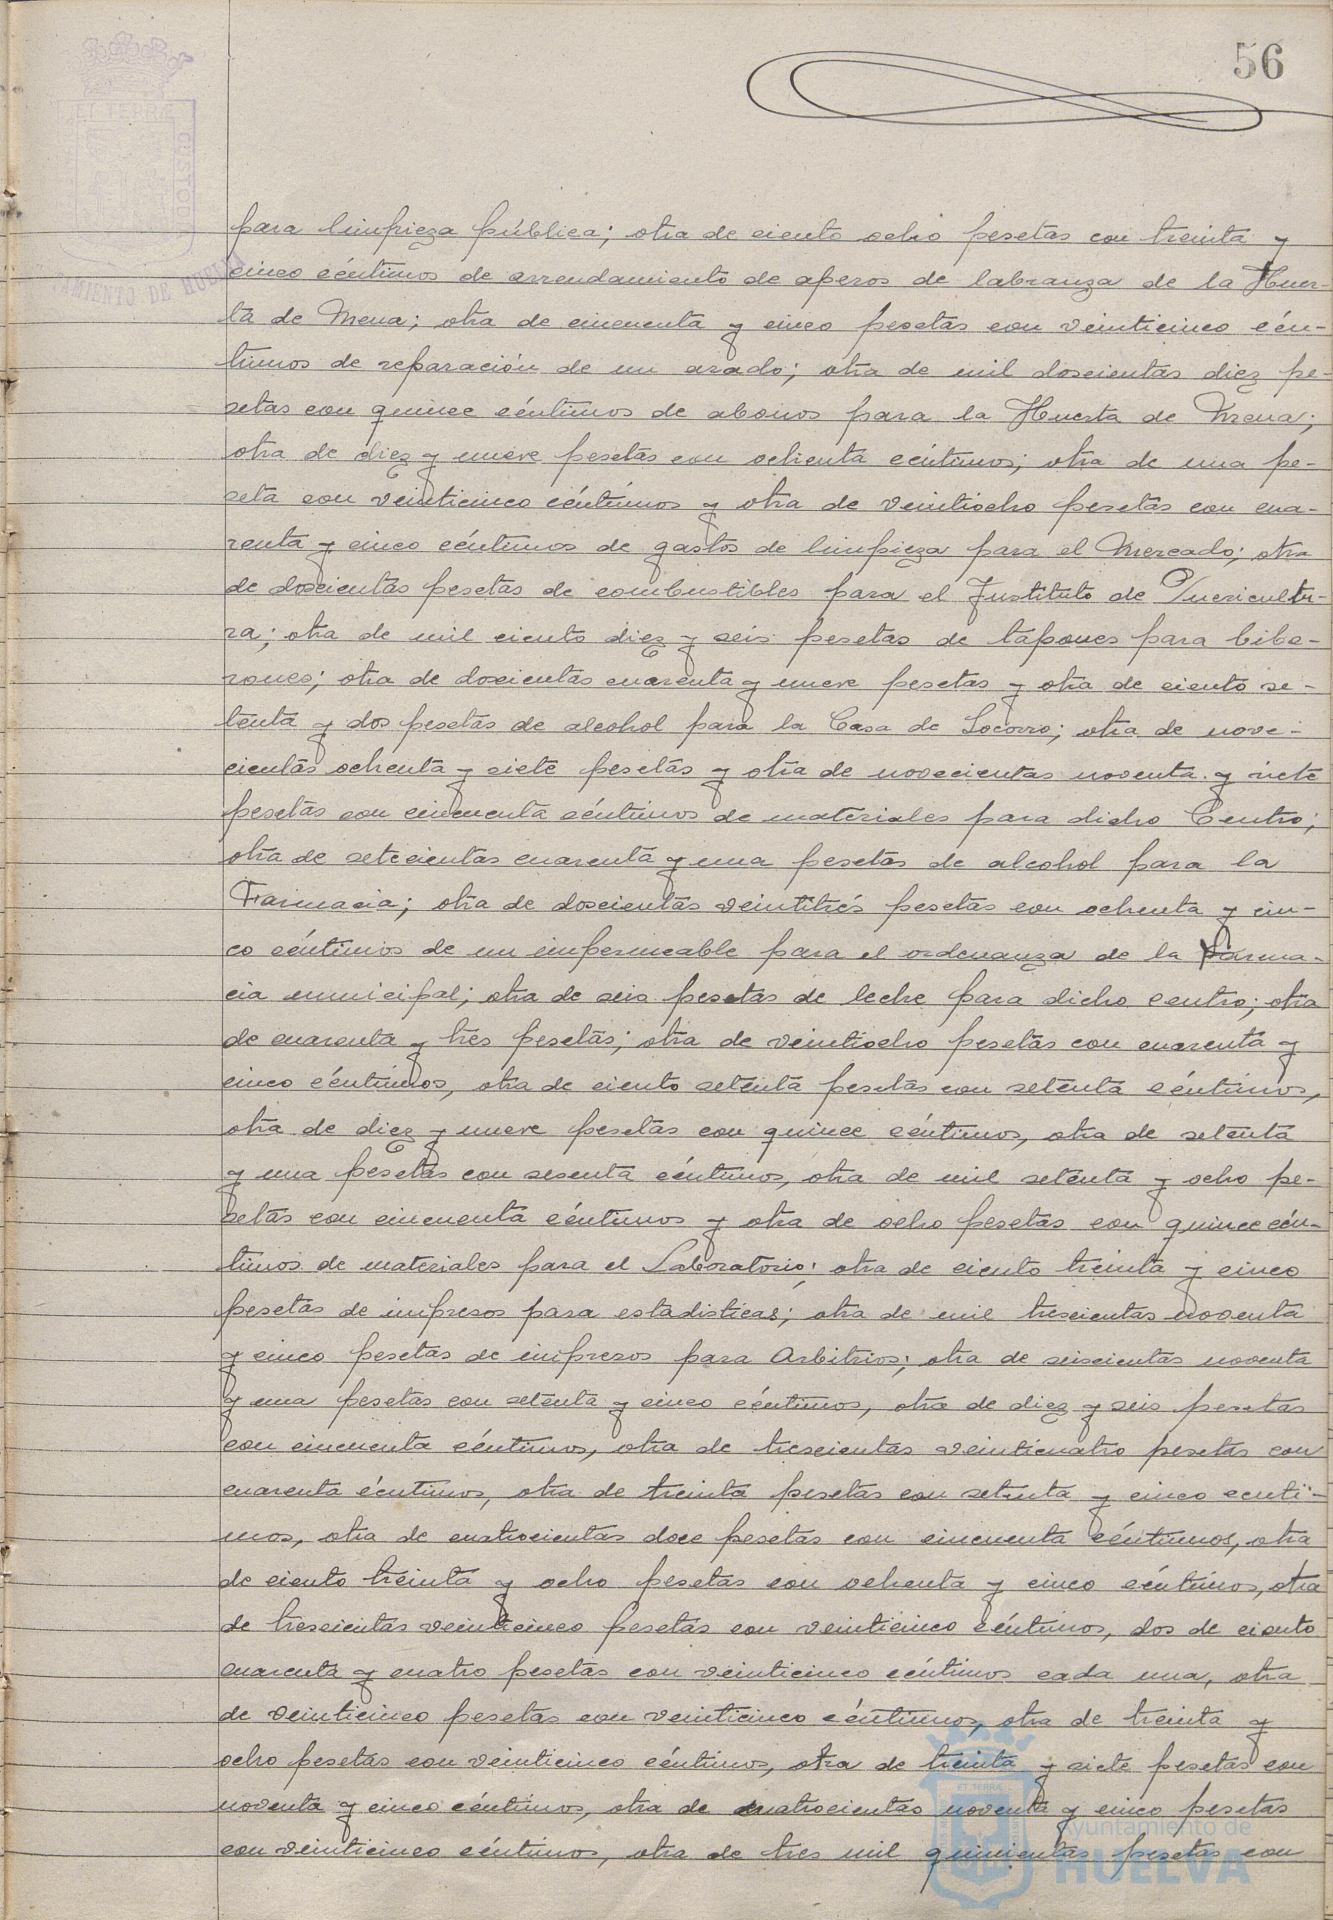 56
ET TERRÆ
CUSTOD
TAMIENTO DE HUELVA
para limpieza pública; otra de ciento ocho pesetas con treinta y
cinco céntimos de arrendamiento de aperos de labranza de la Huer-
ta de Mena; otra de cincuenta y cinco pesetas con veinticinco cén-
timos de reparación de un arado; otra de mil doscientas diez pe-
setas con quince céntimos de abonos para la Huerta de Mena;
otra de diez y nueve pesetas con ochenta céntimos; otra de una pe-
seta con veinticinco céntimos y otra de veintiocho pesetas con cua-
renta y cinco céntimos de gastos de limpieza para el Mercado; otra
de doscientas pesetas de combustibles para el Instituto de Puericultu-
ra; otra de mil ciento diez y seis pesetas de tapones para bibe-
rones; otra de doscientas cuarenta y nueve pesetas y otra de ciento se-
tenta y dos pesetas de alcohol para la Casa de Socorro; otra de nove-
cientas ochenta y siete pesetas y otra de novecientas noventa y siete
pesetas con cincuenta céntimos de materiales para dicho Centro;
otra de setecientas cuarenta y una pesetas de alcohol para la
Farmacia; otra de doscientas veintitrés pesetas con ochenta y cin-
co céntimos de un impermeable para el ordenanza de la Farma-
cia municipal; otra de seis pesetas de leche para dicho centro; otra
de cuarenta y tres pesetas; otra de veintiocho pesetas con cuarenta y
cinco céntimos, otra de ciento setenta pesetas con setenta céntimos,
otra de diez y nueve pesetas con quince céntimos, otra de setenta
y una pesetas con sesenta céntimos, otra de mil setenta y ocho pe-
setas con cincuenta céntimos y otra de ocho pesetas con quince cén-
timos de materiales para el Laboratorio; otra de ciento treinta y cinco
pesetas de impresos para estadísticas; otra de mil trescientas noventa
y cinco pesetas de impresos para Arbitrios; otra de seiscientas noventa
y una pesetas con setenta y cinco céntimos, otra de diez y seis pesetas
con cincuenta céntimos, otra de trescientas veinticuatro pesetas con
cuarenta céntimos, otra de treinta pesetas con setenta y cinco centi-
mos, otra de cuatrocientas doce pesetas con cincuenta céntimos, otra
de ciento treinta y ocho pesetas con ochenta y cinco céntimos, otra
de trescientas veinticinco pesetas con veinticinco céntimos, dos de ciento
cuarenta y cuatro pesetas con veinticinco céntimos cada una, otra
de veinticinco pesetas con veinticinco céntimos, otra de treinta y
ocho pesetas con veinticinco céntimos, otra de treinta y siete pesetas con
noventa y cinco céntimos, otra de cuatrocientas noventa y cinco pesetas
con veinticinco céntimos, otra de tres mil quinientas pesetas con
ET TERRÆ
Ayuntamiento de
HUELVA